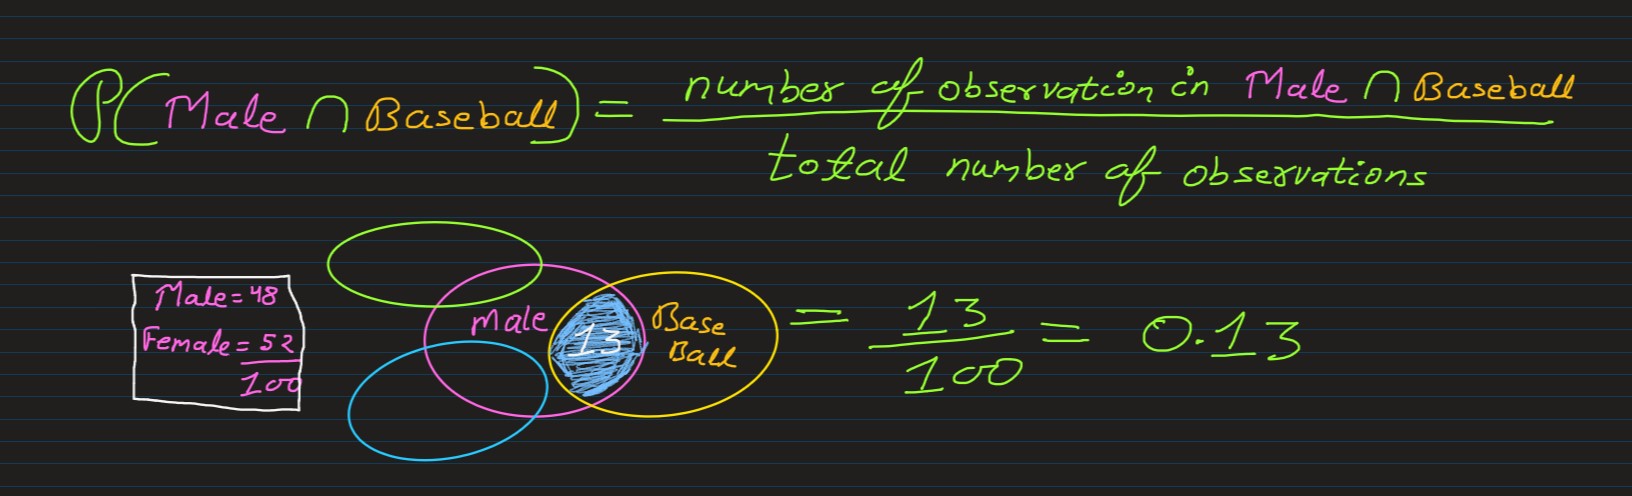 P(Male ∩ Baseball) = number of observation in Male ∩ Baseball
total number of observations
Male = 48
Female = 52
100
Male
13
Base
Ball
= 13
100
= 0.13